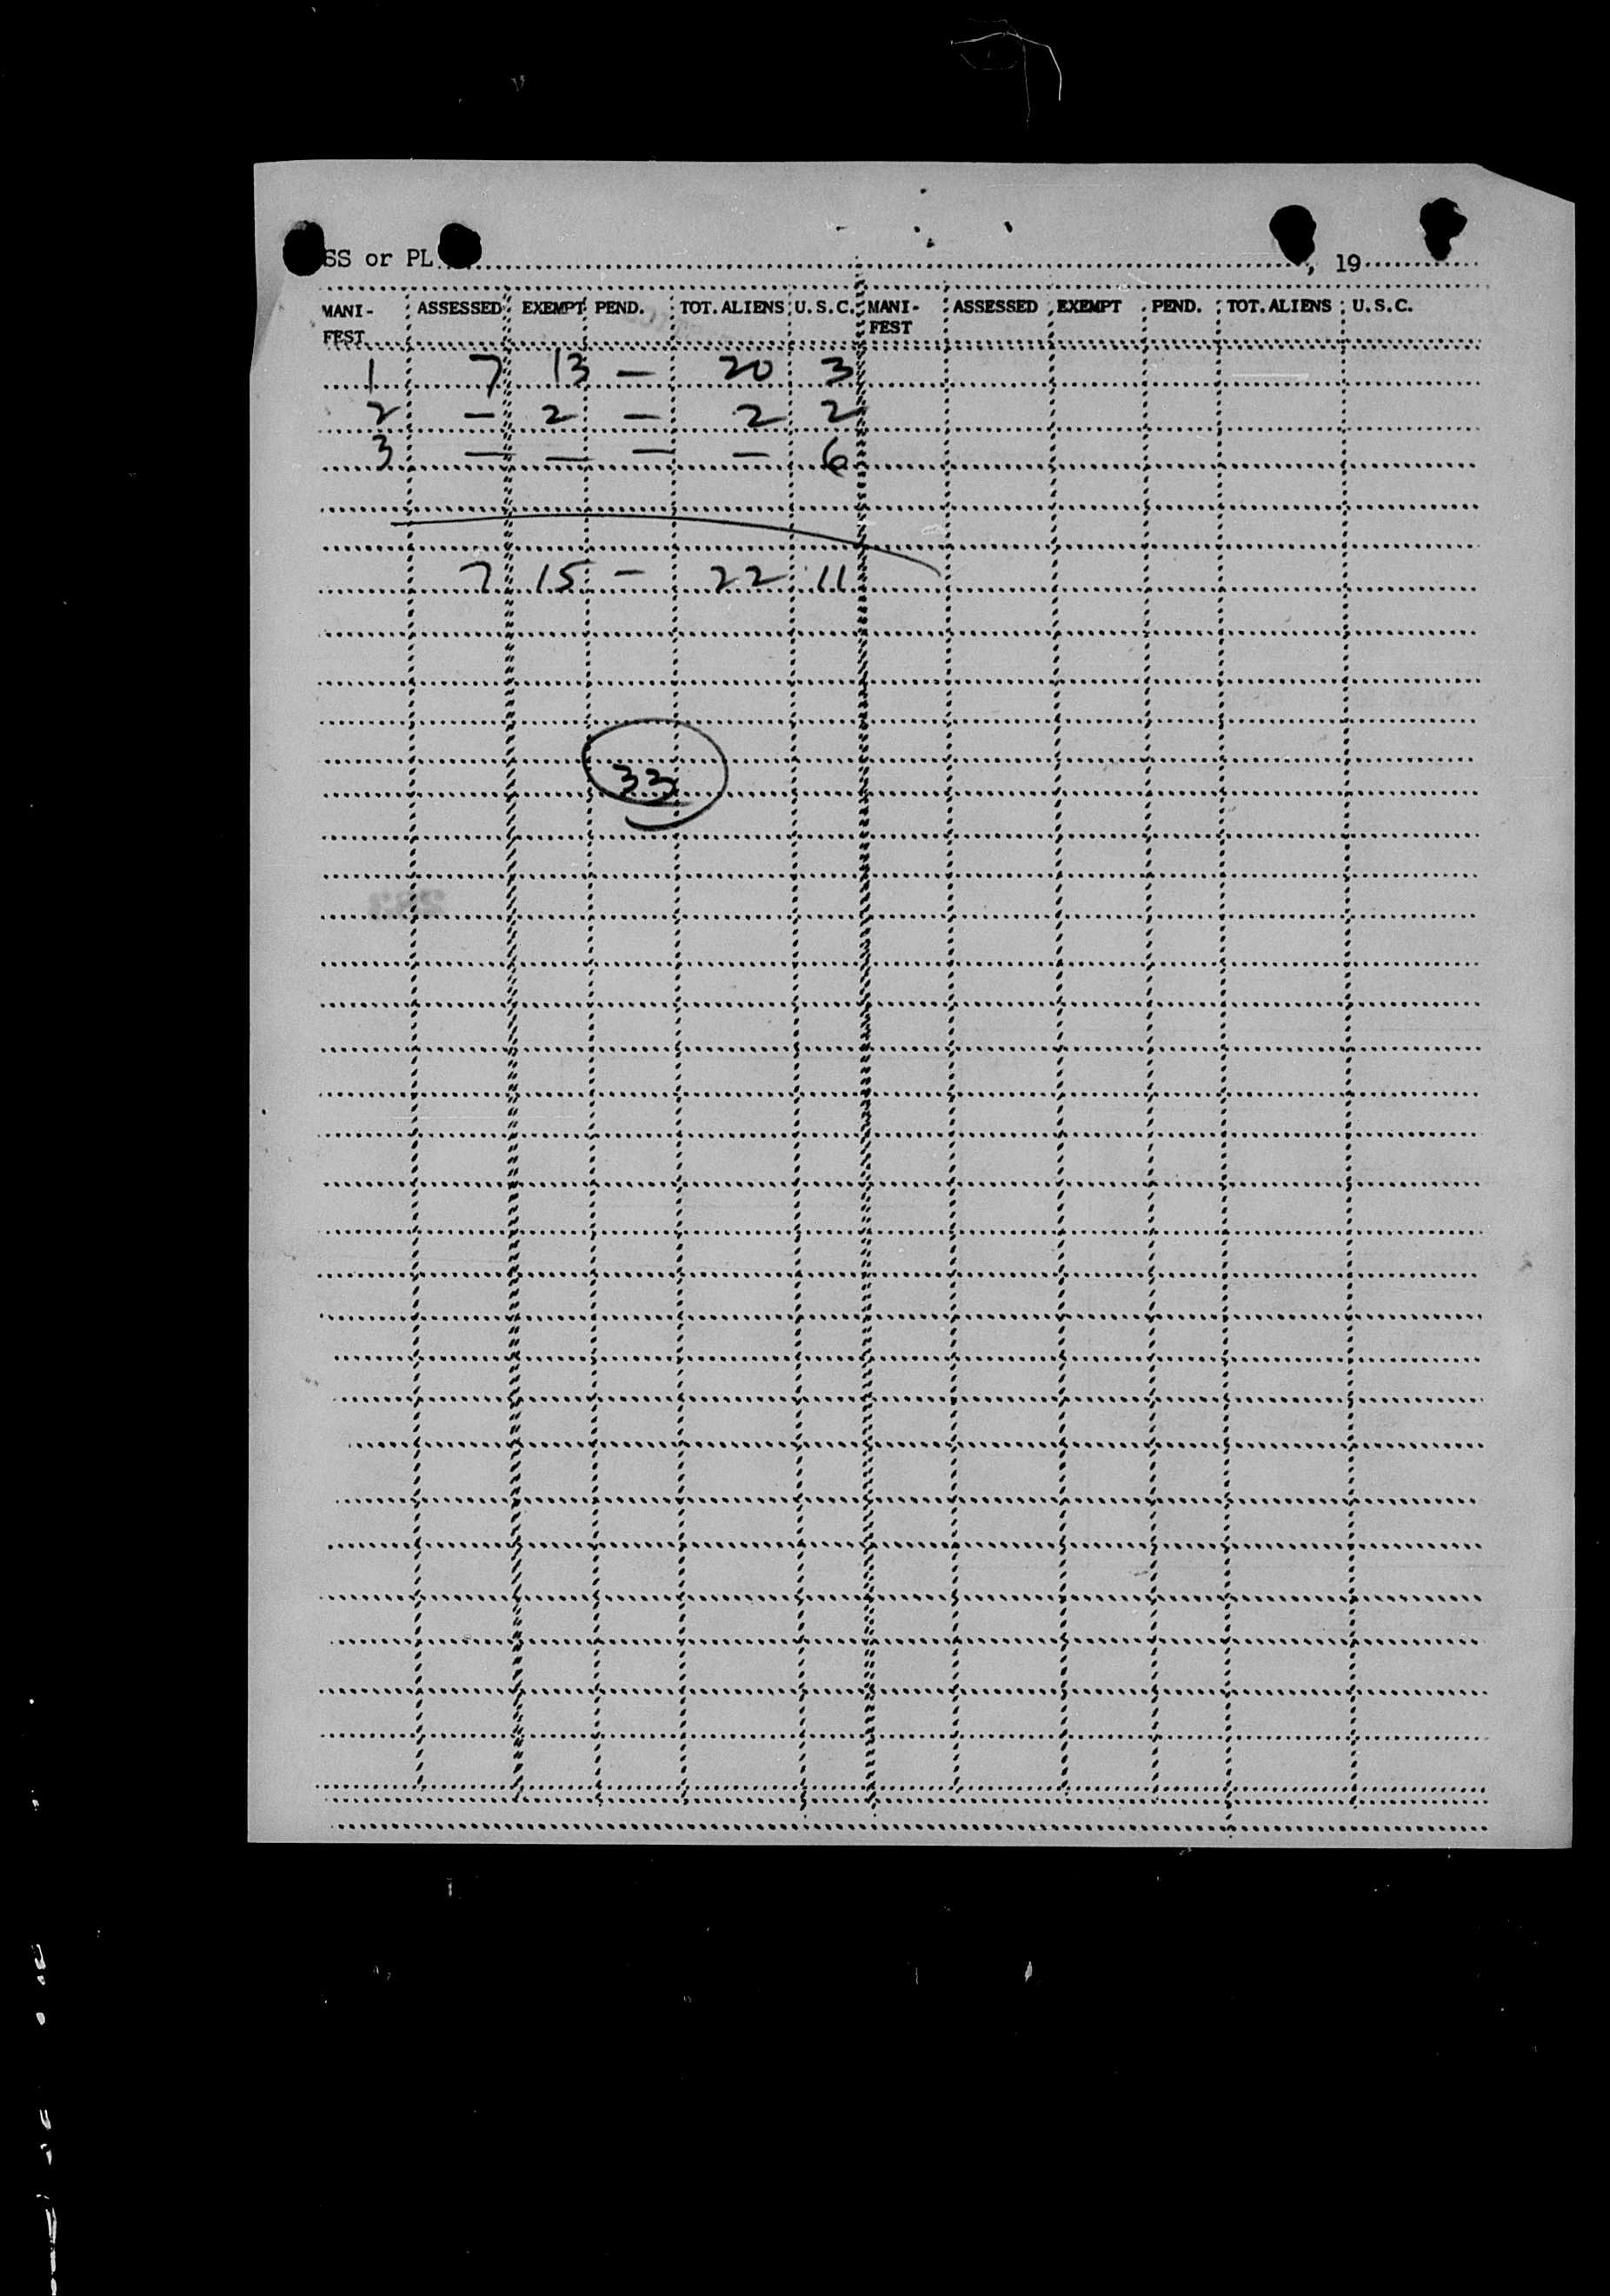 SS or PL , 19
MANI- ASSESSED EXEMPT PEND. TOT. ALIENS U. S. C. MANI- ASSESSED EXEMPT PEND. TOT. ALIENS U. S. C.
FEST FEST
1 7 13 — 20 3
2 — 2 — 2 2
3 — — — — 6
7 15 — 22 11
33